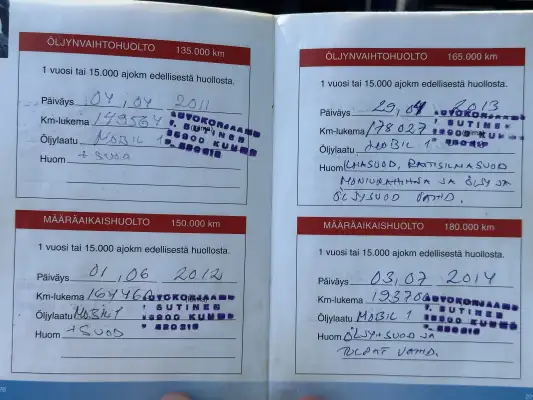 ÖLJYNVAIHTOHUOLTO 135.000 km
1 vuosi tai 15.000 ajokm edellisestä huollosta.
Päiväys 04,04 2011
Km-lukema 149564
Öljylaatu MOBIL 1
Huom + SUOD
AUTOKORJAAMO
T. SUTINEN
MÄÄRÄAIKAISHUOLTO 150.000 km
1 vuosi tai 15.000 ajokm edellisestä huollosta.
Päiväys 01,06 2012
Km-lukema 164460
Öljylaatu MOBIL 1
Huom + SUOD
AUTOKORJAAMO
SUTINEN
ÖLJYNVAIHTOHUOLTO 165.000 km
1 vuosi tai 15.000 ajokm edellisestä huollosta.
Päiväys 29, 2013
Km-lukema 178027
Öljylaatu MOBIL 1
Huom ILMASUOD, RAITISILMASUOD
JA ÖLJY JA
ÖLJYSUOD VAIHD.
AUTOKORJAAMO
SUTINEN
MÄÄRÄAIKAISHUOLTO 180.000 km
1 vuosi tai 15.000 ajokm edellisestä huollosta.
Päiväys 03,07 2014
Km-lukema 193700
Öljylaatu MOBIL 1
Huom ÖLJY+SUOD JA
TULPAT VAIHD.
AUTOKORJAAMO
SUTINEN